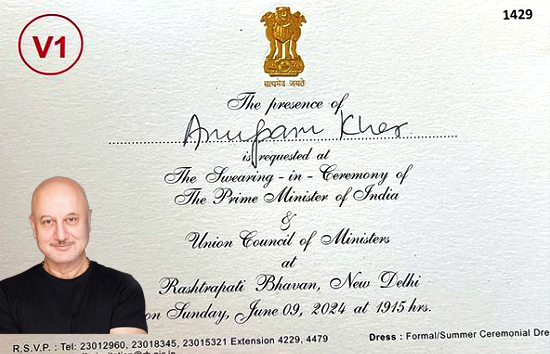 V1
1429
सत्यमेव जयते
The presence of
Anupam Kher
is requested at
The Swearing - in - Ceremony of
The Prime Minister of India
&
Union Council of Ministers
at
Rashtrapati Bhavan, New Delhi
on Sunday, June 09, 2024 at 1915 hrs.
R.S.V.P. : Tel: 23012960, 23018345, 23015321 Extension 4229, 4479
Dress : Formal/Summer Ceremonial Dre